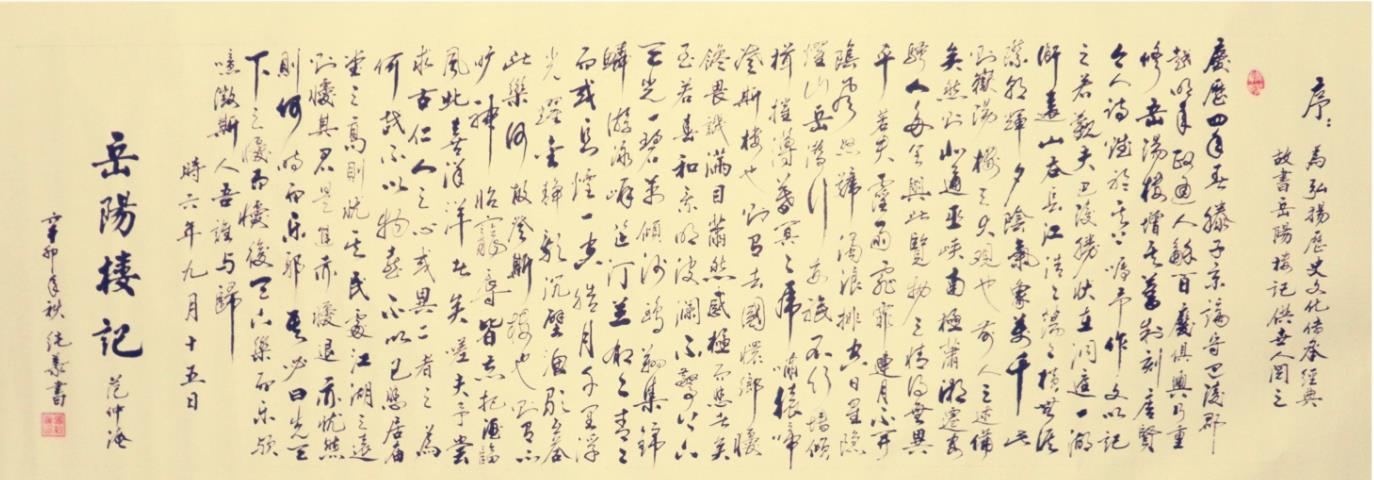 序：為弘揚歷史文化传承經典
故書岳陽樓記供世人閱之
慶歷四年春滕子京謫守巴陵郡
越明年政通人和百廢俱興乃重
修岳陽樓增其舊制刻唐賢
今人詩賦於其上嘱予作文以記
之若觀夫巴陵勝状在洞庭一湖
衔遠山吞長江浩浩湯湯橫無涯
際朝輝夕陰氣象萬千此
則岳陽樓之大觀也前人之述備
矣然則北通巫峡南極瀟湘遷客
騷人多會於此覽物之情得無異
乎若夫霪雨霏霏連月不开
陰風怒號濁浪排空日星隐
耀山岳潜行商旅不行墙傾
楫摧薄暮冥冥虎嘯猿啼
登斯樓也則有去國懷鄉憂
饞畏譏滿目蕭然感極而悲者矣
至若春和景明波瀾不驚上下
天光一碧萬傾沙鷗翔集錦
鱗游泳岸芷汀兰郁郁青青
而或長煙一空皓月千里浮
光耀金静影沉璧漁歌互答
此樂何極登斯樓也則有心
旷神怡寵辱皆忘把酒臨
風其喜洋洋者矣嗟夫予嘗
求古仁人之心或異二者之為
何哉不以物喜不以已悲居廟
堂之高則憂其民處江湖之遠
則憂其君是進亦憂退亦憂然
則何時而乐耶其必曰先天
下之憂而憂後天下之樂而乐歟
噫微斯人吾誰与歸
時六年九月十五日
岳陽楼記 范仲淹
辛卯年秋 純義書